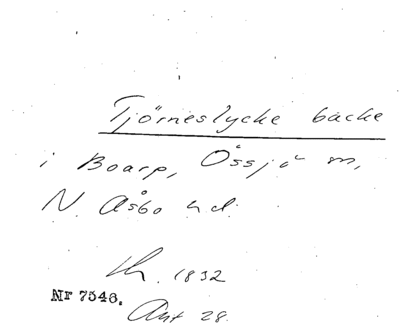 Tjörneslycke backe
i Boarp, Össjö sn,
N. Åsbo hd.
Lh. 1832
Nr 7546.
Akt 28.